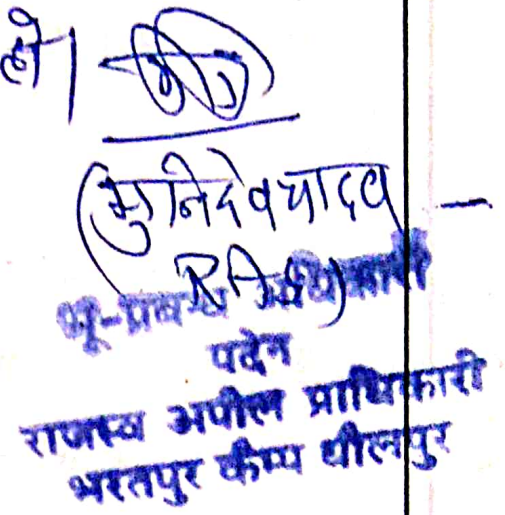 हो।
(मुनिदेव यादव
RAS)
भू-प्रबन्ध अधिकारी
पदेन
राजस्व अपील प्राधिकारी
भरतपुर कैम्प धौलपुर